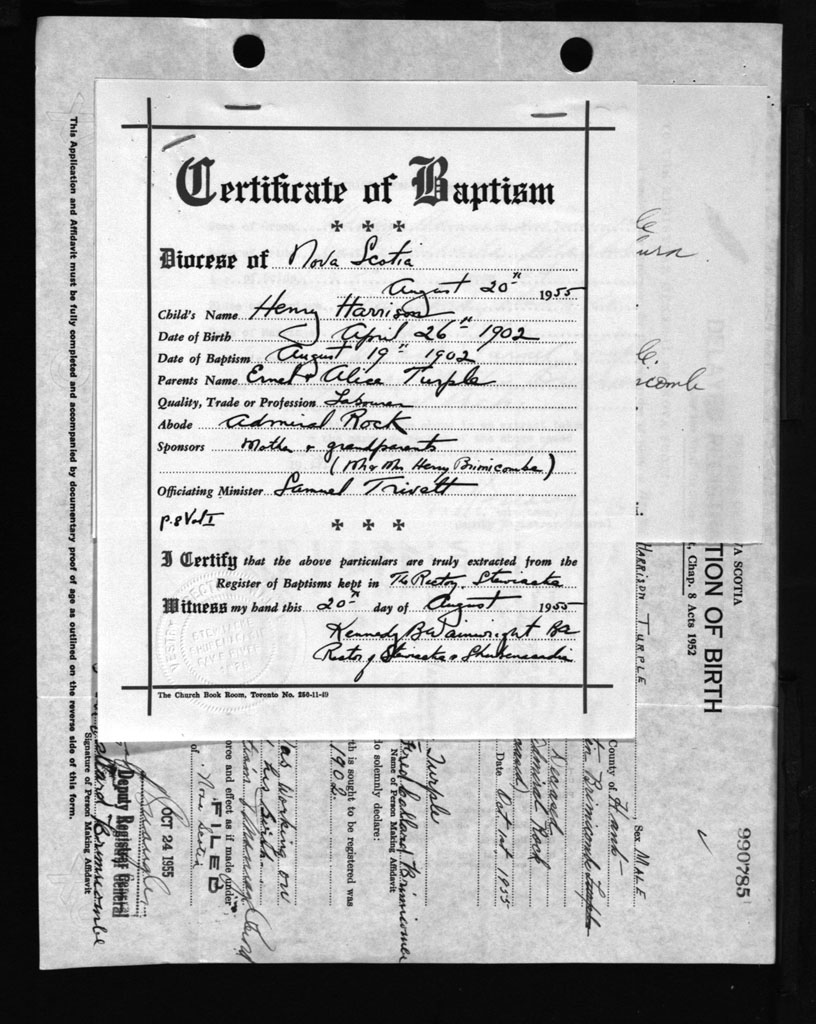 Certificate of Baptism
Diocese of Nova Scotia
August 20th 1955
Child's Name Henry Harrison
Date of Birth April 26th 1902
Date of Baptism August 19th 1902
Parents Name Ernest & Alice Turple
Quality, Trade or Profession Labourer
Abode Admiral Rock
Sponsors Mother & grandparents
(Mr & Mrs Henry Brimicombe)
Officiating Minister Samuel Trivett
p. 8 Vol I
I Certify that the above particulars are truly extracted from the
Register of Baptisms kept in The Rectory, Stewiacke
Witness my hand this 20th day of August 1955
Kennedy B Wainwright BA
Rector of Stewiacke & Shubenacadie
The Church Book Room, Toronto No. 250-11-49
This Application and Affidavit must be fully completed and accompanied by documentary proof of age as outlined on the reverse side of this form.
990785
TION OF BIRTH
, Chap. 8 Acts 1952
A SCOTIA
HARRISON TURPLE
Sex MALE
County of Hants
Brimicombe Turple
Servant
Admiral Rock
Date Oct 1st 1955
Turple
Fred Callard Brimicombe
Name of Person Making Affidavit
do solemnly declare:
th is sought to be registered was
1902
as working on
his birth
orce and effect as if made under
FILED
of Nova Scotia
OCT 24 1955
Deputy Registrar General
Callard Brimicombe
Signature of Person Making Affidavit